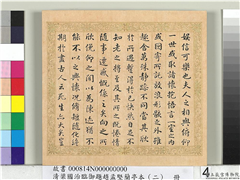 娛信可樂也夫人之相與俯仰
一世或取諸懷抱悟言一室之內
或因寄所託放浪形骸之外雖
趣舍萬殊靜躁不同當其欣
於所遇暫得於己快然自足不
知老之將至及其所之既倦情
隨事遷感慨係之矣向之所
欣俛仰之間以為陳迹猶不
能不以之興懷況脩短隨化終
期於盡古人云死生亦大矣豈
故書 000814N00000000 冊
清梁國治臨御題趙孟堅蘭亭本（二）